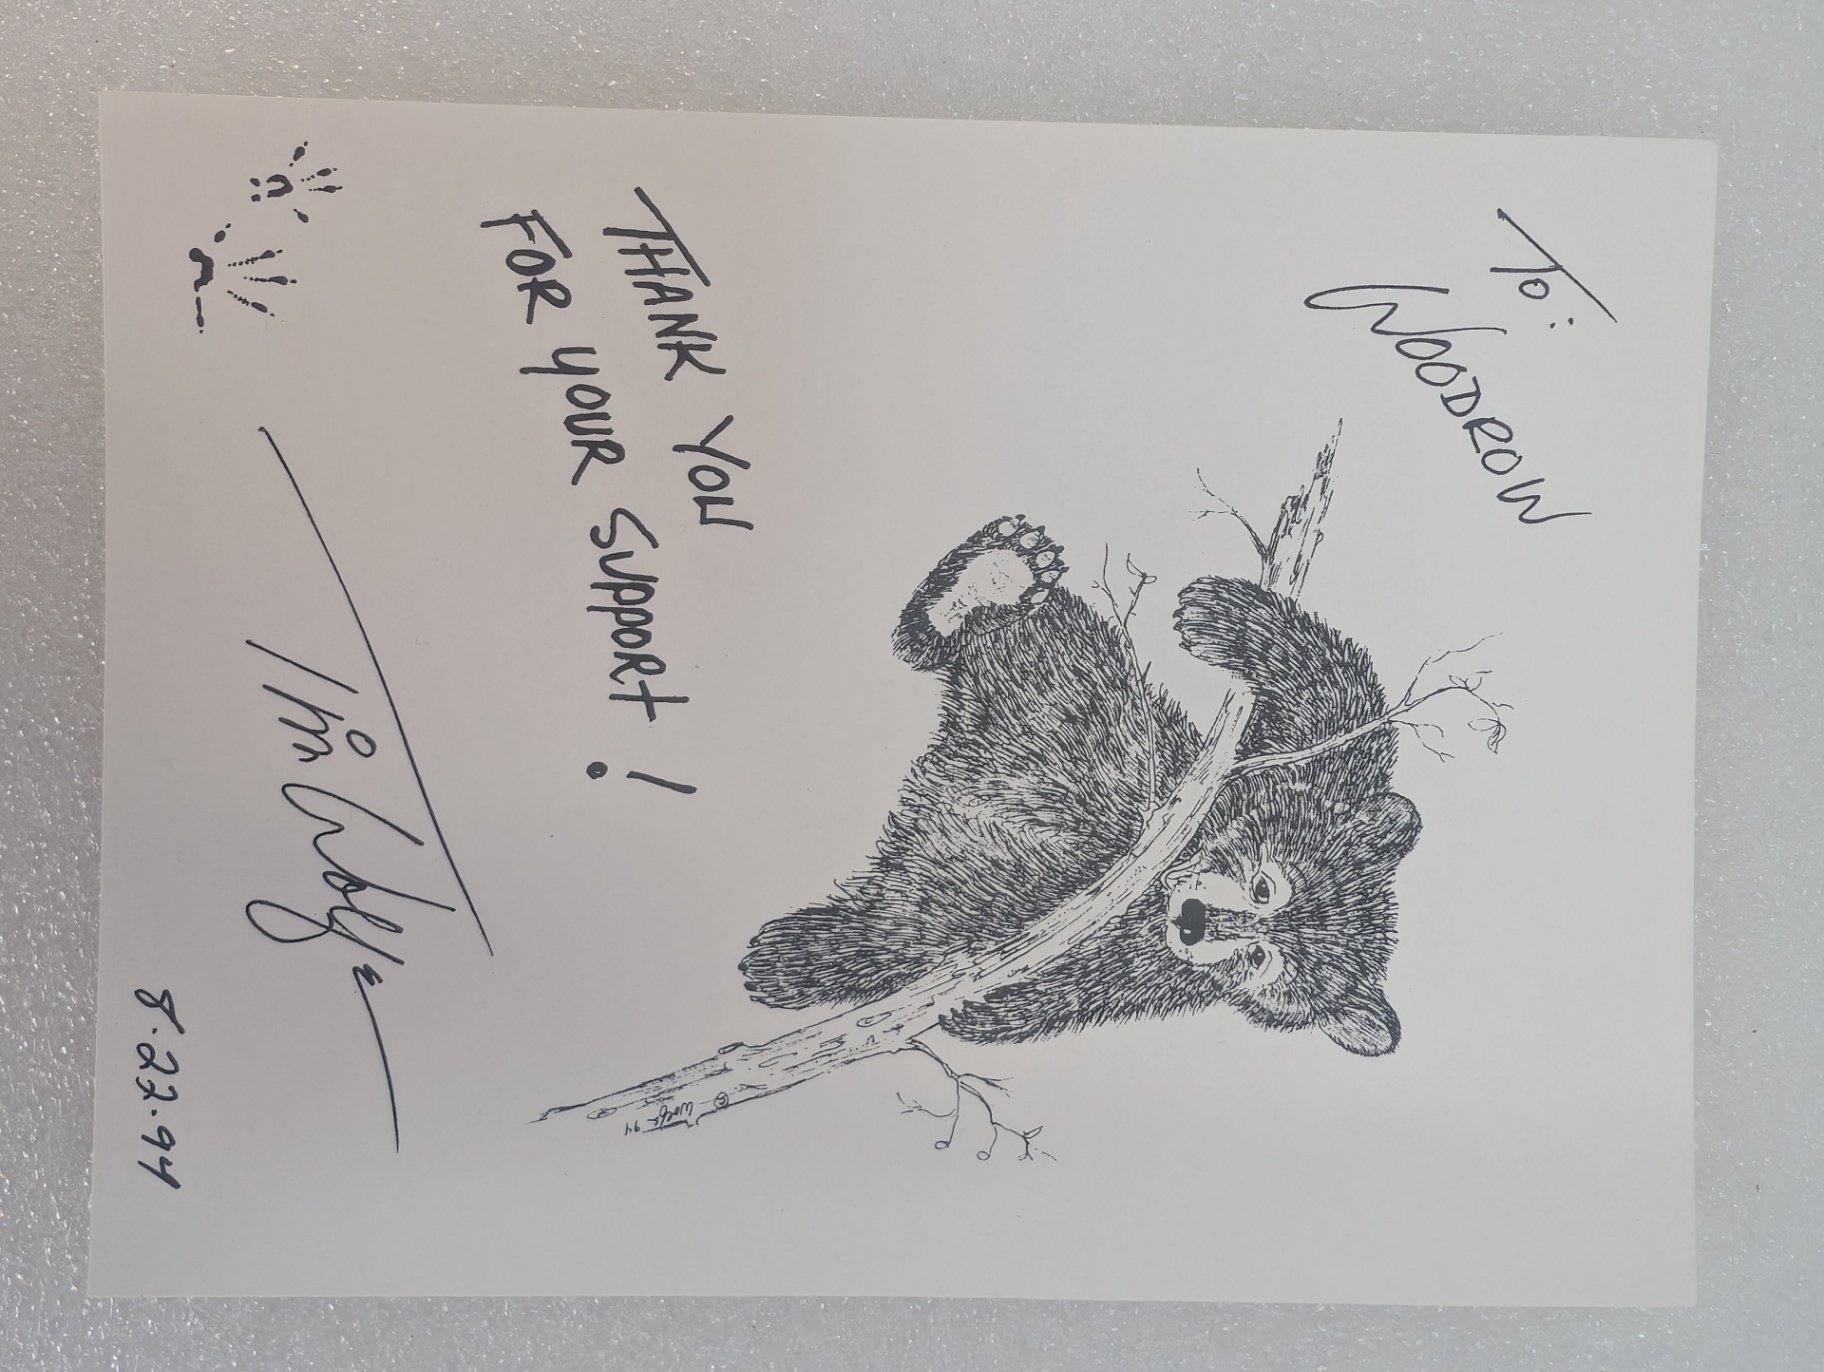 To:
WOODROW
© Wolfe 94
THANK YOU
FOR YOUR SUPPORT!
Tim Wolfe
8.22.94